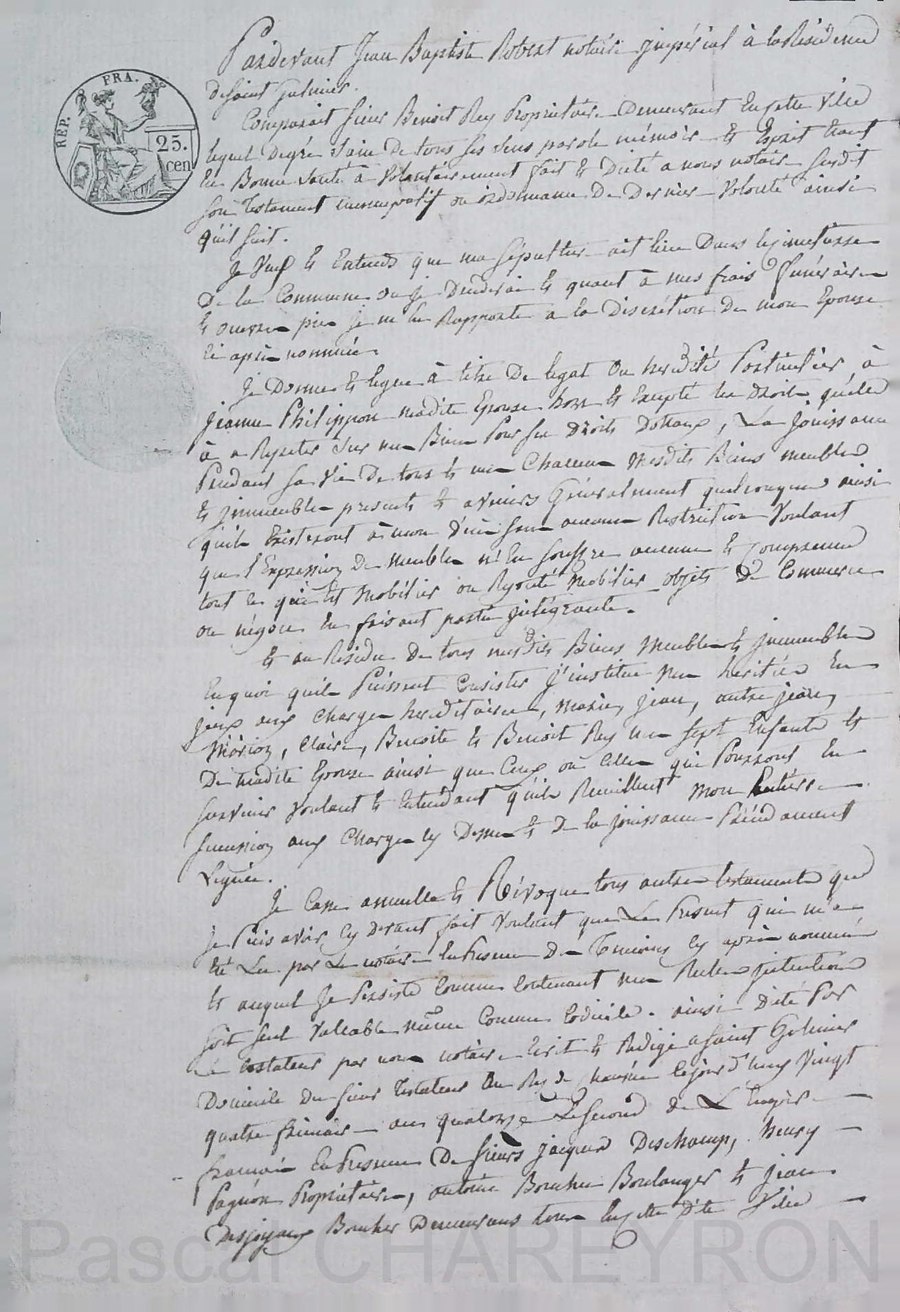 REP. FRA.
25.
cen
Pardevant Jean Baptiste Robert notaire jmpérial à la Résidence
de saint galmier.
Comparait sieur Benoit Rey Propriétaire Demeurant En cette Ville
lequel Degré sain de tous ses sens parole mémoire Et Esprit
En Bonne santé a Volontairement fait Et Dicté a nous notaire susdit
son Testament nuncupatif ou ordonnance De Dernière Volonté ainsi
quil suit.
Je Veux Et Entends que ma sépulture ait lieu Dans
De la Commune ou je Et quant à mes frais funéraires
Et œuvres pies je m'en Rapporte a la Discrétion De mon Epouse
ci après nommée.
Je Donne Et legue à titre De legat ou heredité Particulier à
jeanne Philippon madite Epouse Et Excepté les Droits quelle
à a Repeter sur mes Biens Pour ses Droits Dotaux, La jouissance
Pendant sa Vie De tous Et un Chacun Mesdits Biens meubles
Et jmmeubles presents Et avenirs Généralement quelconques ainsi
quils Existeront à mon sans aucune Restriction Voulant
que l'Expression De meubles n'En souffre aucune Et comprenne
tout ce qui Est Mobilier ou Reputé Mobilier objets De Commerce
ou négoce En faisant partie jntégrante.
Et au Résidu De tous mesdits Biens Meubles Et jmmeubles
En quoi quils Puissent Consister j'institue mes heritiers En
jceux aux Charges hereditaires, Marie, jean, autre jean,
Marion, Claire, Benoite Et Benoit Rey mes sept Enfants Et
De madite Epouse ainsi que Ceux ou Celles qui Pourront En
survenir Voulant Et Entendant quils Recueillent mon Entière
succession aux Charges cy Dessus Et De la jouissance Précédament
Liguée.
Je Casse annulle Et Révoque tous autres testaments que
je Puis avoir cy devant fait Voulant que Le Present qui m'a
été Lu par Le notaire En Presence De Temoins cy après nommés
Et auquel je Persiste Comme Contenant mes intentions
soit seul Valable même Comme Codicile. ainsi Dicté Par
Le testateur par nous notaire Ecrit Et Redigé a saint Galmier
Domicile du sieur Testateur lejourd'huy Vingt
quatre frimaire an quatorze Le second de L'Empire
francais En Presence De sieurs jacques Deschamp, henry
Pagnon Propriétaires, antoine Bouchu Boulanger Et jean
Desjoyaux Boucher Demeurans tous En cette Ville
Pascal CHAREYRON